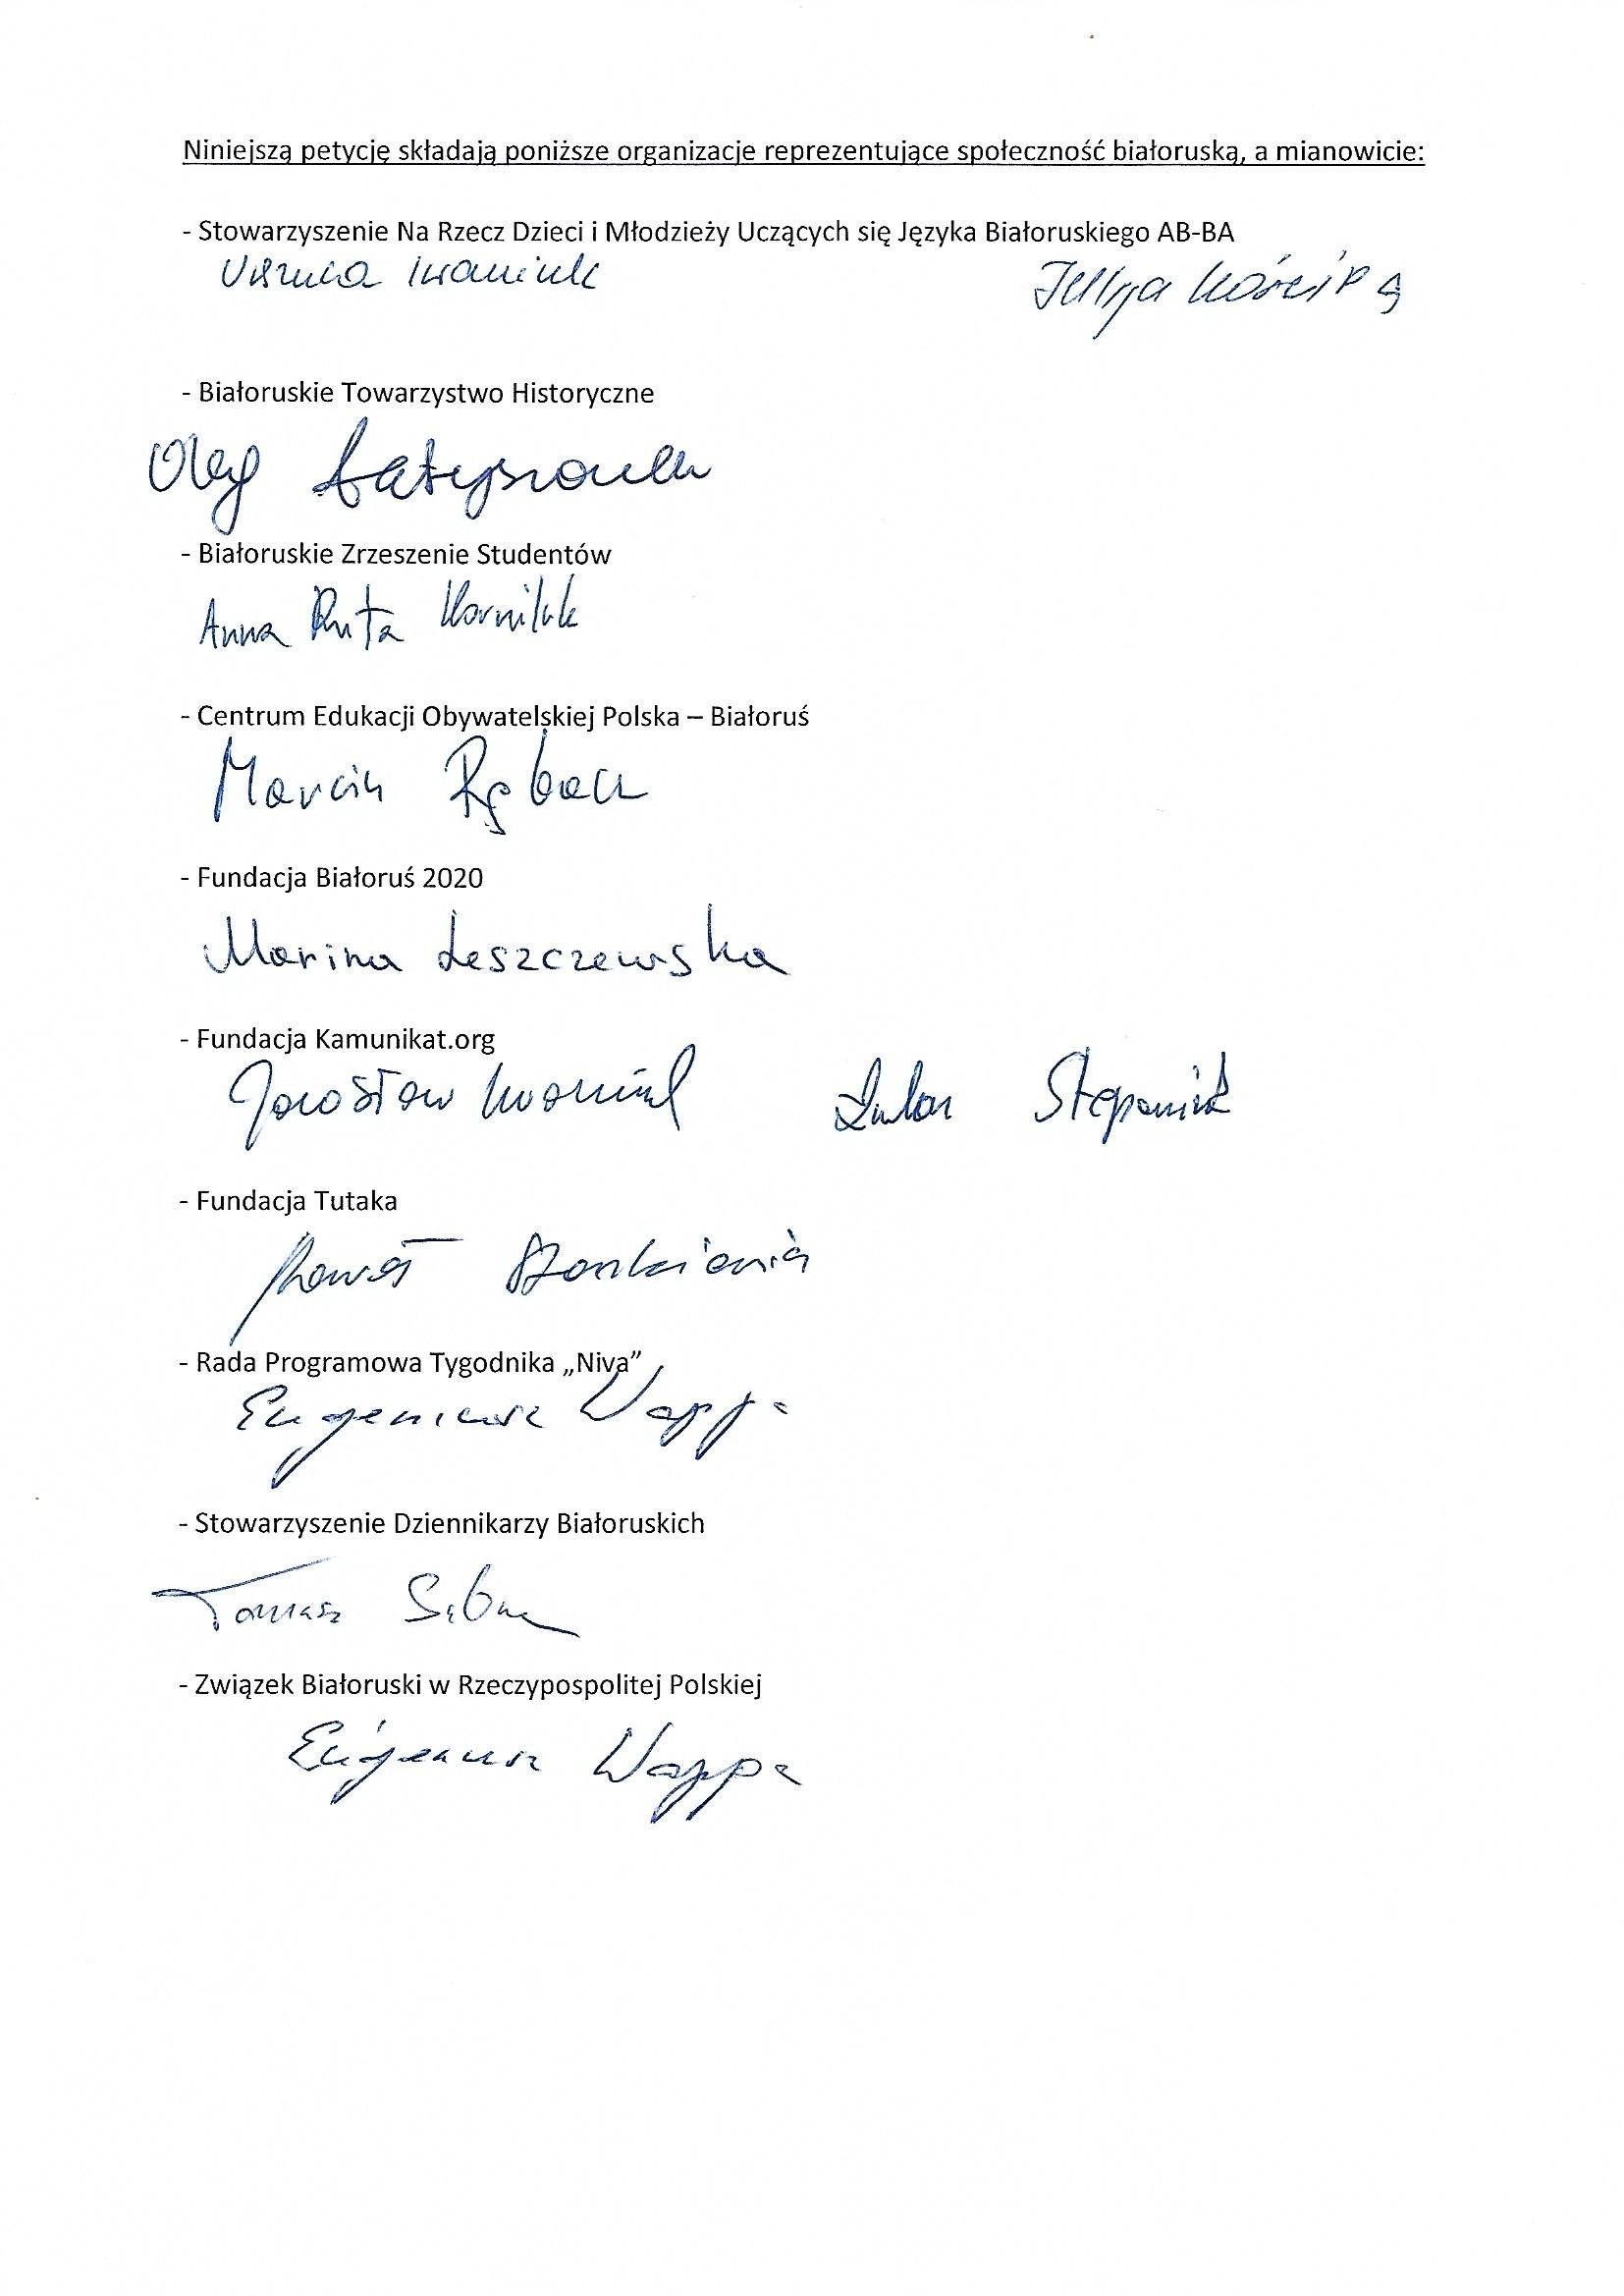 Niniejszą petycję składają poniższe organizacje reprezentujące społeczność białoruską, a mianowicie:
- Stowarzyszenie Na Rzecz Dzieci i Młodzieży Uczących się Języka Białoruskiego AB-BA
Iwaniuk
- Białoruskie Towarzystwo Historyczne
Oleg Łatyszonek
- Białoruskie Zrzeszenie Studentów
Anna Ruta Korniluk
- Centrum Edukacji Obywatelskiej Polska – Białoruś
Marcin Rębacz
- Fundacja Białoruś 2020
Marina Leszczewska
- Fundacja Kamunikat.org
Jarosław Iwaniuk Stepaniuk
- Fundacja Tutaka
Paweł Stankiewicz
- Rada Programowa Tygodnika „Niva”
Eugeniusz Wappa
- Stowarzyszenie Dziennikarzy Białoruskich
Tomasz
- Związek Białoruski w Rzeczypospolitej Polskiej
Eugeniusz Wappa